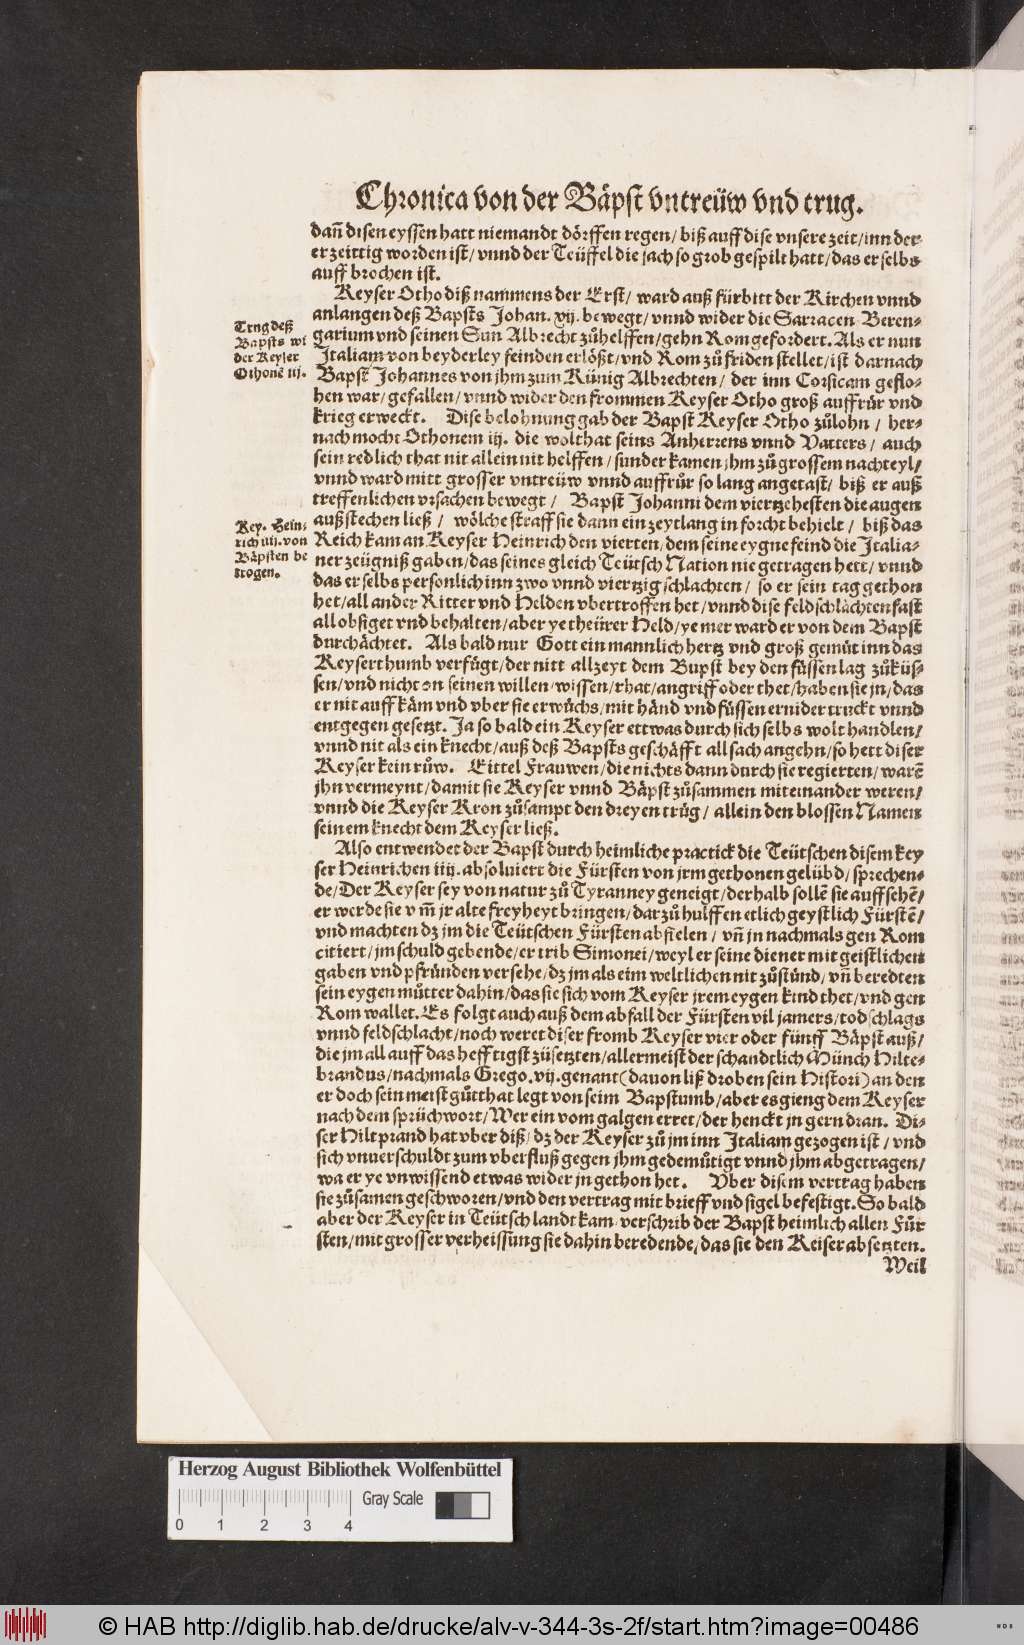 Chronica von der Bäpst vntreüw vnd trug.
dañ disen eyssen hatt niemandt dörffen regen / biß auff dise vnsere zeit / inn der
er zeittig worden ist / vnnd der Teüffel die sach so grob gespilt hatt / das er selbs
auff brochen ist.
Keyser Otho diß nammens der Erst / ward auß fürbitt der Kirchen vnnd
anlangen deß Bapsts Johan. xij. bewegt / vnnd wider die Sarracen Beren-
garium vnd seinen Sun Albrecht zůhelffen / gehn Rom gefordert. Als er nun
Trug deß
Bapsts wi
der Keyser
Othonē iij.
Italiam von beyderley feinden erlößt / vnd Rom zů friden stellet / ist darnach
Bapst Johannes von jhm zum Künig Albrechten / der inn Corsicam geflo-
hen war / gefallen / vnnd wider den frommen Keyser Otho groß auffrůr vnd
krieg erweckt. Dise belohnung gab der Bapst Keyser Otho zůlohn / her-
nach mocht Othonem iij. die wolthat seins Anherrens vnnd Vatters / auch
sein redlich that nit allein nit helffen / sunder kamen jhm zů grossem nachteyl /
vnnd ward mitt grosser vntreüw vnnd auffrůr so lang angetast / biß er auß
treffenlichen vrsachen bewegt / Bapst Johanni dem viertzehesten die augen
außstechen ließ / wölche straff sie dann ein zeytlang in forcht behielt / biß das
Key. Hein-
rich iiij. von
Bäpsten be
trogen.
Reich kam an Keyser Heinrich den vierten / dem seine eygne feind die Italia-
ner zeügniß gaben / das seines gleich Teütsch Nation nie getragen hett / vnnd
das er selbs personlich inn zwo vnnd viertzig schlachten / so er sein tag gethon
het / all ander Ritter vnd Helden vbertroffen het / vnnd dise feldschlachten fast
all obsiget vnd behalten / aber ye theürer Held / ye mer ward er von dem Bapst
durchächtet. Als bald nur Gott ein mannlich hertz vnd groß gemüt inn das
Keyserthumb verfügt / der nitt allzeyt dem Bapst bey den füssen lag zůküs-
sen / vnd nicht on seinen willen / wissen / rhat / angriff oder thet / haben sie jn / das
er nit auff käm vnd vber sie erwüchs / mit händ vnd füssen ernider truckt vnnd
entgegen gesetzt. Ja so bald ein Keyser ettwas durch sich selbs wolt handlen /
vnnd nit als ein knecht / auß deß Bapsts geschäfft all sach angehn / so hett diser
Keyser kein růw. Eittel Frauwen / die nichts dann durch sie regierten / warē
jhn vermeynt / damit sie Keyser vnnd Bäpst zůsammen miteinander weren /
vnnd die Keyser Kron zůsampt den dreyen trůg / allein den blossen Namen
seinem knecht dem Keyser ließ.
Also entwendet der Bapst durch heimliche practick die Teütschen disem key
ser Heinrichen iiij. absoluiert die Fürsten von jrm gethonen gelübd / sprechen-
de / Der Keyser sey von natur zů Tyranney geneigt / derhalb sollē sie auffsehē /
er werde sie vm̄ jr alte freyheyt bringen / dar zů hulffen etlich geystlich Fürstē /
vnd machten dz jm die Teütschen Fürsten abfielen / vñ jn nachmals gen Rom
citiert / jm schuld gebende / er trib Simonei / weyl er seine diener mit geistlichen
gaben vnd pfründen versehe / dz jm als eim weltlichen nit zůstünd / vñ beredten
sein eygen můtter dahin / das sie sich vom Keyser jrem eygen kind thet / vnd gen
Rom wallet. Es folgt auch auß dem abfall der Fürsten vil jamers / todschlags
vnnd feldschlacht / noch weret diser fromb Keyser vier oder fünff Bäpst auß /
die jm all auff das hefftigst zůsetzten / allermeist der schandtlich Münch Hilte-
brandus / nachmals Grego. vij. genant (dauon liß droben sein Histori) an den
er doch sein meist gůtthat legt von seim Bapstumb / aber es gieng dem Keyser
nach dem sprüchwort / Wer ein vom galgen erret / der henckt jn gern dran. Di-
ser Hiltprand hat vber diß / dz der Keyser zů jm inn Italiam gezogen ist / vnd
sich vnuerschuldt zum vberfluß gegen jhm gedemůtigt vnnd jhm abgetragen /
wa er ye vnwissend etwas wider jn gethon het. Vber disem vertrag haben
sie zůsamen geschworen / vnd den vertrag mit brieff vnd sigel befestigt. So bald
aber der Keyser in Teütschlandt kam / verschrib der Bapst heimlich allen Für
sten / mit grosser verheissung sie dahin beredende / das sie den Keiser absetzten.
Weil
Herzog August Bibliothek Wolfenbüttel
Gray Scale
0 1 2 3 4
© HAB http://diglib.hab.de/drucke/alv-v-344-3s-2f/start.htm?image=00486